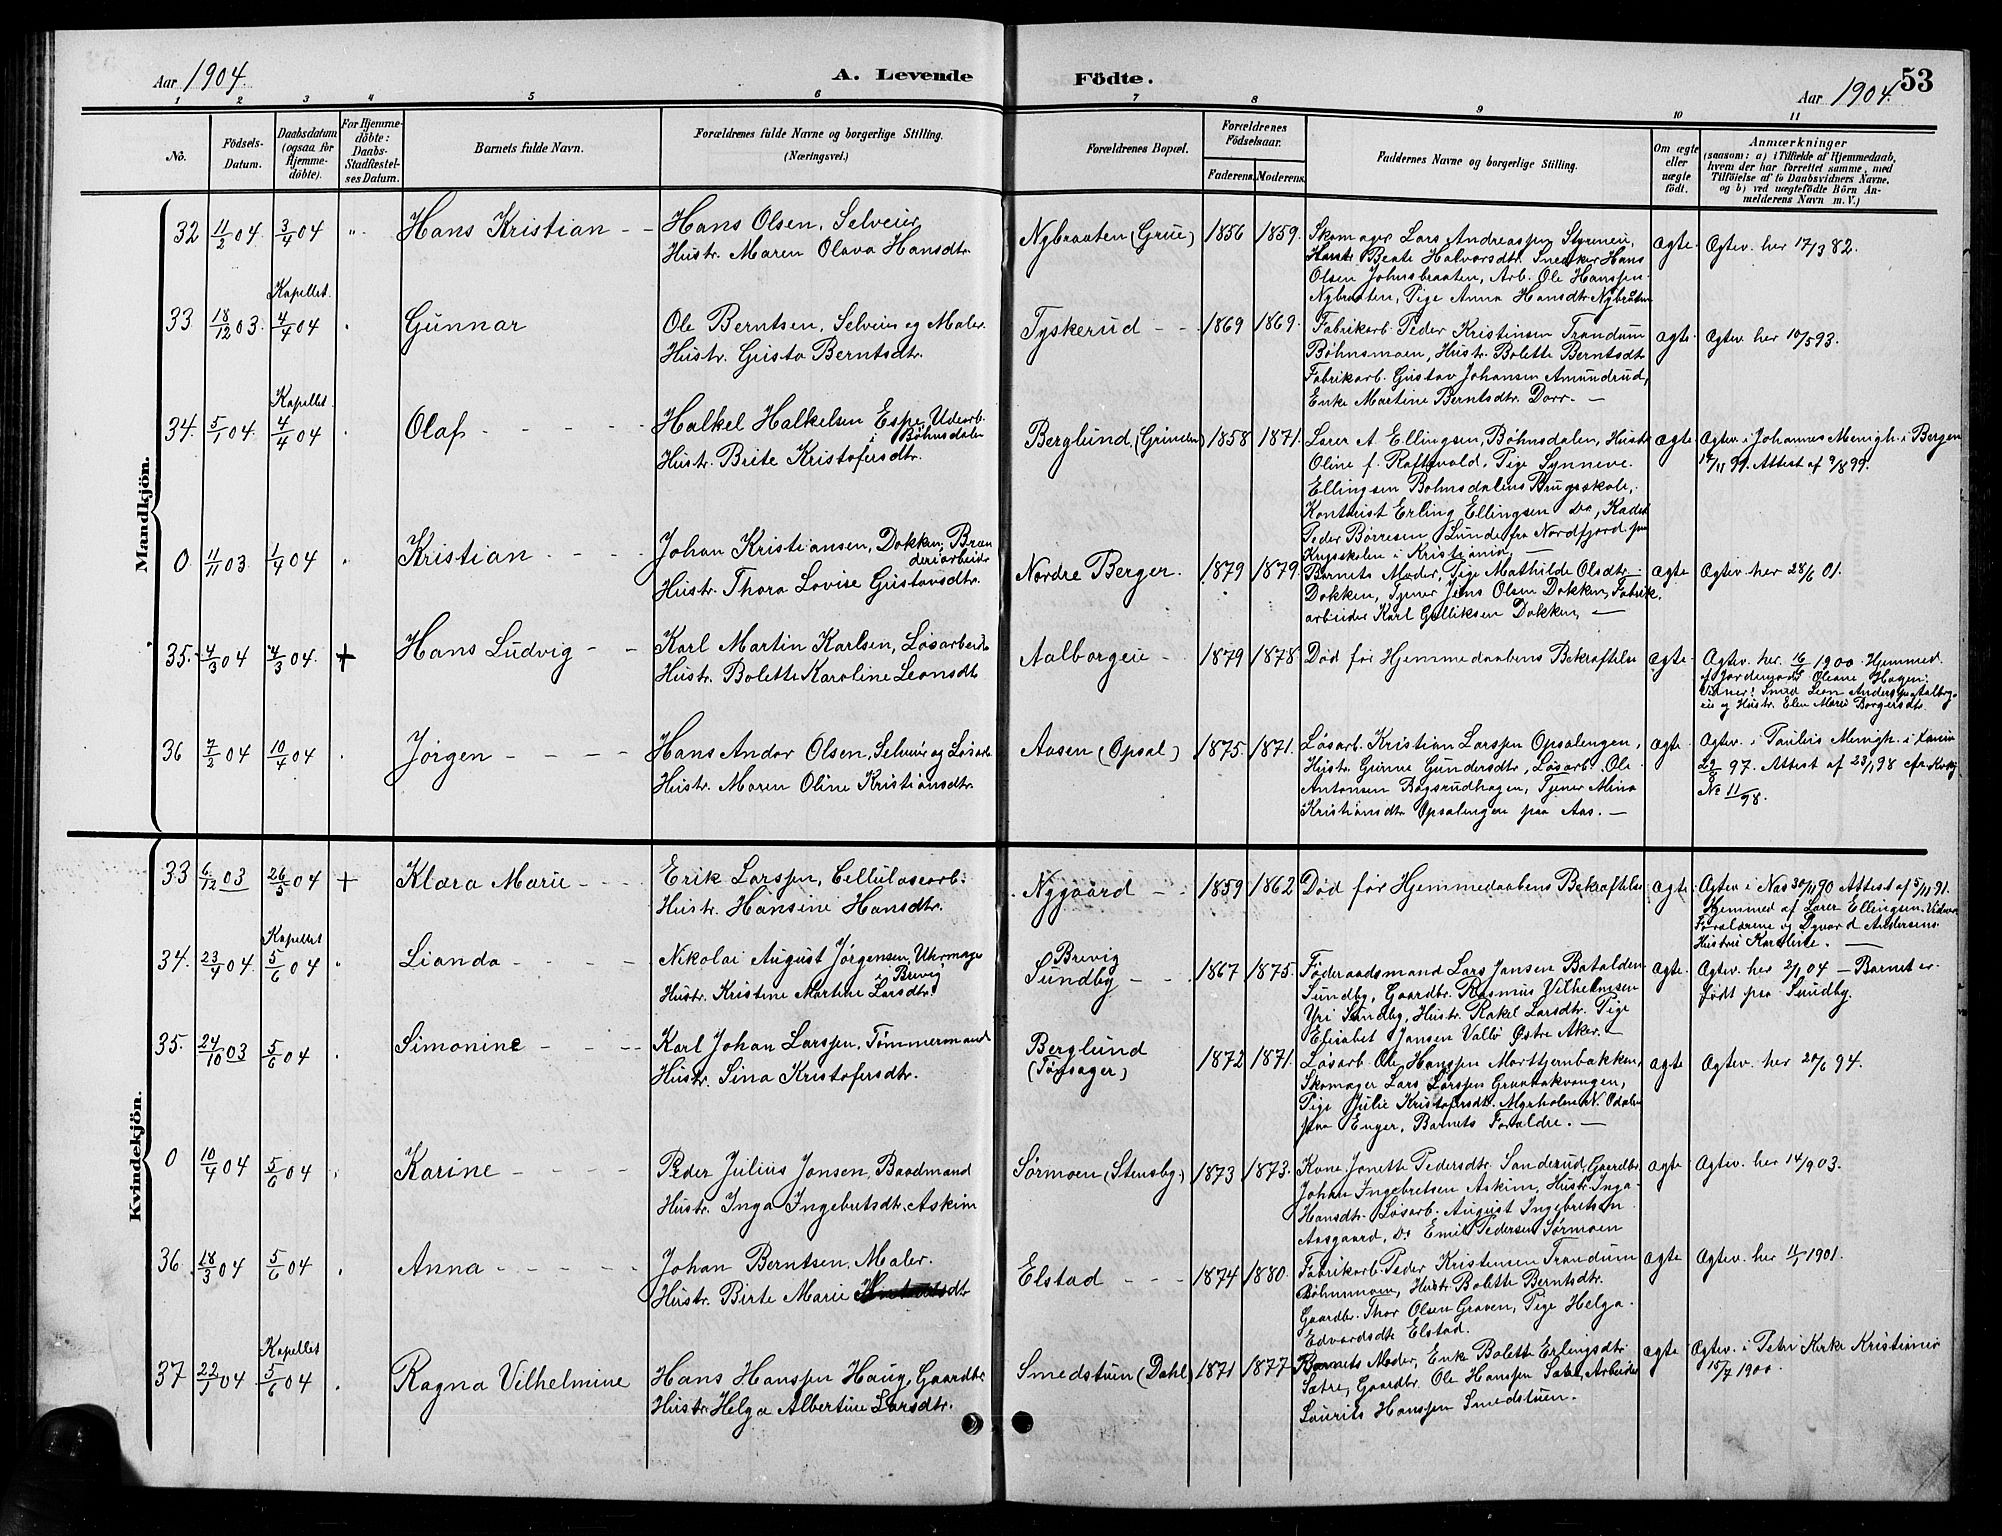 Aar 1904. A. Levende Födte. Aar 1904. 53
1 2 3 4 5 6 7 8 9 10 11
No. Födsels-Datum. Daabsdatum (ogsaa for Hjemme-döbte). For Hjemme-döbte: Daabs-Stadfæstel-ses Datum. Barnets fulde Navn. Forældrenes fulde Navne og borgerlige Stilling. (Næringsvei.) Forældrenes Bopæl. Forældrenes Födselsaar. Faderens. Moderens. Faddernes Navne og borgerlige Stilling. Om ægte eller uægte födt. Anmærkninger (saasom: a) i Tilfælde af Hjemmedaab, hvem der har forrettet samme, med Tilföielse af to Daabsvidners Navne, og b) ved uægtefödte Börn An-melderens Navn m. V.)
Mandkjön.
32 11/2 04. 3/4 04 " Hans Kristian Hans Olsen, Selveier,
Hustr. Maren Olava Hansdtr.
Nybraaten (Grue) 1856 1859.
Skomager Lars Andreassen Styrmeu,
Hustr. Beate Halvorsdtr. Snedker Hans
Olsen Johnsbraaten, Arb. Ole Hanssen
Nybraaten, Pige Anna Hansdtr Nybraten
ægte. Ægtev. her 17/3 82.
33 18/12 03. Kapellet. 4/4 04 Gunnar
Ole Berntsen, Selveier og Maler.
Hustr. Gusta Berntsdtr.
Tyskerud 1869 1869.
Fabrikarb. Peder Kristinsen Trandum
Bøhnsmoen, Hustr. Bolette Berntsdtr
Fabrikarb. Gustav Johansen Amundrud,
Enke Martine Berntsdtr. Dorr. —
ægte. Ægtev. her 10/5 93.
34. 5/1 04. Kapellet 4/4 04 Olaf
Halkel Halkelsen Espe, Udearb.
i Bøhnsdalen
Hustr. Brite Kristofersdtr.
Berglund. (Grinden) 1858 1871.
Lærer A. Ellingsen, Bøhnsdalen, Hustr
Oline f. Raftevold, Pige Synneve
Ellingsen Bøhnsdalens Brugsskole,
Kontorist Erling Ellingsen Do, Kadet
Peder Børresen Lunde fra Nordfjord paa
Krigsskolen i Kristiania. —
ægte Ægtev. i Johannes Menigh. i Bergen
Attest af 9/8 99.
0 11/11 03. 1/4 04 Kristian
Johan Kristiansen, Dokken, Bræn
deriarbeider
Hustr. Thora Lovise Gustavsdtr.
Nordre Berger. 1879 1879.
Barnets Moder, Pige Mathilde Olsdtr
Dokken, Tjener Jens Olsen Dokken, Fabrik
arbeider Karl Gulliksen Dokken, —
ægte Ægtev. her 28/6 01.
35. 4/3 04 4/3 04. + Hans Ludvig
Karl Martin Karlsen, Løsarbeider
Hustr. Bolette Karoline Leonsdtr
Aalborgeie 1879 1878
Død før Hjemmedaabens Bekræftelse
ægte. Ægtev. her. 16/6 1900. Hjemmed.
af Jordemoder Oleane Hagen.
Vidner: Smed Leon Anderssen Aalborg-
eie og Hustr. Elen Marie Borgersdtr.
36 7/2 04 10/4 04 Jørgen
Hans Andor Olsen, Selveier og Løsarb.
Hustr. Maren Oline Kristiansdtr.
Aasen (Opsal) 1875. 1871.
Løsarb. Kristian Larssen Opsalengen,
Hustr. Gurine Gundersdtr, Løsarb. Ole
Antonsen Bøgsrudhagen, Tjener Mina
Kristiansdtr Opsalengen paa Aas. —
ægte. Ægtev. i Paulus Menigh. i Xania
97. Attest af 23/1 98
No 11/98.
Kvindekjön.
33 6/12 03 26/5 04 + Klara Marie
Erik Larssen, Cellulosearb.
Hustr. Hansine Hansdtr.
Nygaard 1859 1862
Død før Hjemmedaabens Bekræftelse
ægte. Ægtev i Næs 30/11 90 Attest af 5/11 91.
Hjemmed af Lærer Ellingsen. Vidner
Forældrene og Andersens
Hustru Karoline. —
34. 23/4 04. Kapellet 5/6 04 Lianda
Nikolai August Jørgensen, Uhrmager
i Brevig
Hustr. Kristine Martine Larsdtr.
Brevig
Sundby 1867 1875.
Føderaadsmand Lars Jansen Batalden
Sundby, Gaardbr. Rasmus Vilhelmsen
Yri Sundby, Hustr. Rakel Larsdtr. Pige
Elisabet Jansen Vallø Østre Aker. —
ægte. Ægtev. her 2/1 04 — Barnet er
født paa Sundby.
35. 24/10 03 5/6 04 Simonine
Karl Johan Larssen, Tømmermand
Hustr. Sina Kristofersdtr.
Berglund
(Tønsager) 1872 1871.
Løsarb. Ole Hanssen Morttjernbakken,
Skomager Lars Larssen,
Pige Julie Kristofersdtr. Myrholen N. Odalen
paa Enger, Barnets Forældre. —
ægte Ægtev. her 20/6 94.
0 10/4 04 5/6 04 Karine
Peder Julius Jonsen, Baadmand
Hustr. Inga Ingebretsdtr. Askim
Sørmoen (Stensby) 1873 1873.
Kone Jonette Pedersdtr. Sanderud, Gaardbr.
Johan Ingebretsen Askim, Hustr. Inga
Hansdtr. Løsarb. August Ingebretsen
Aasgaard, Do Emil Pedersen Sørmoen
ægte Ægtev. her 14/9 03.
36. 18/3 04 5/6 04 Anna
Johan Berntsen, Maler.
Hustr. Birte Marie
Elstad 1874 1880.
Fabrikarb. Peder Kristensen Trandum
Bøhnsmoen, Hustr. Bolette Berntsdtr.
Gaardbr. Thor Olsen Graven, Pige Helga
Edvardsdtr Elstad.
ægte Ægtev. her 11/1 1901.
37 22/1 04 Kapellet 5/6 04 Ragna Vilhelmine
Hans Hanssen Haug, Gaardbr.
Hustr. Helga Albertine Larsdtr.
Smedstuen (Dahl) 1871 1877
Barnets Moder, Enke Bolette Erlingsdtr.
Sætre, Gaardbr. Ole Hanssen Sætre, Arbeider
Laurits Hanssen Smedstuen.
ægte Ægtev. i Petri Kirke Kristiania
15/7 1900